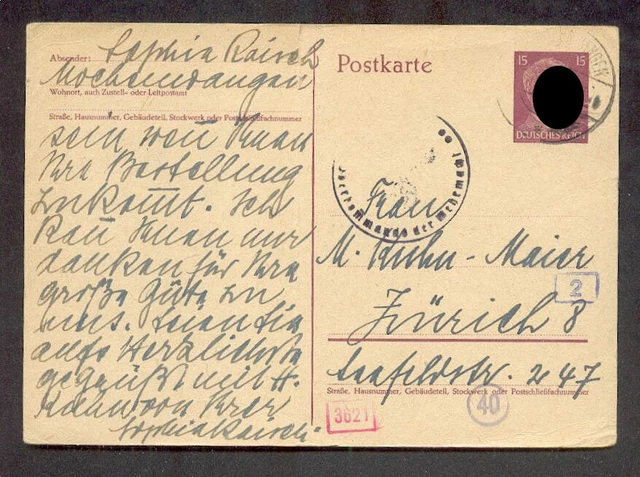 Absender: Sophie Raisch
Mochenwangen
Wohnort, auch Zustell- oder Leitpostamt
Straße, Hausnummer, Gebäudeteil, Stockwerk oder Postschließfachnummer
sein wen Ihnen
Ihre Bestellung
zukomt. Ich
kan Ihnen nur
danken für Ihre
große Güte zu
uns.
aufs Herzlichste
gegrüßt mit H.
von Ihrer
Sophie Raisch
Postkarte
15 15
DEUTSCHES REICH
Oberkommando der Wehrmacht
Frau
M. Kuhn-Maier
2
Zürich 8
Seefeldstr. 247
Straße, Hausnummer, Gebäudeteil, Stockwerk oder Postschließfachnummer
3621
40